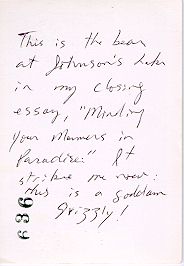 This is the bear
at Johnson's Lake
in my closing
essay, "Minding
your Manners in
Paradise." It
strikes me now:
this is a goddam
Grizzly!
636